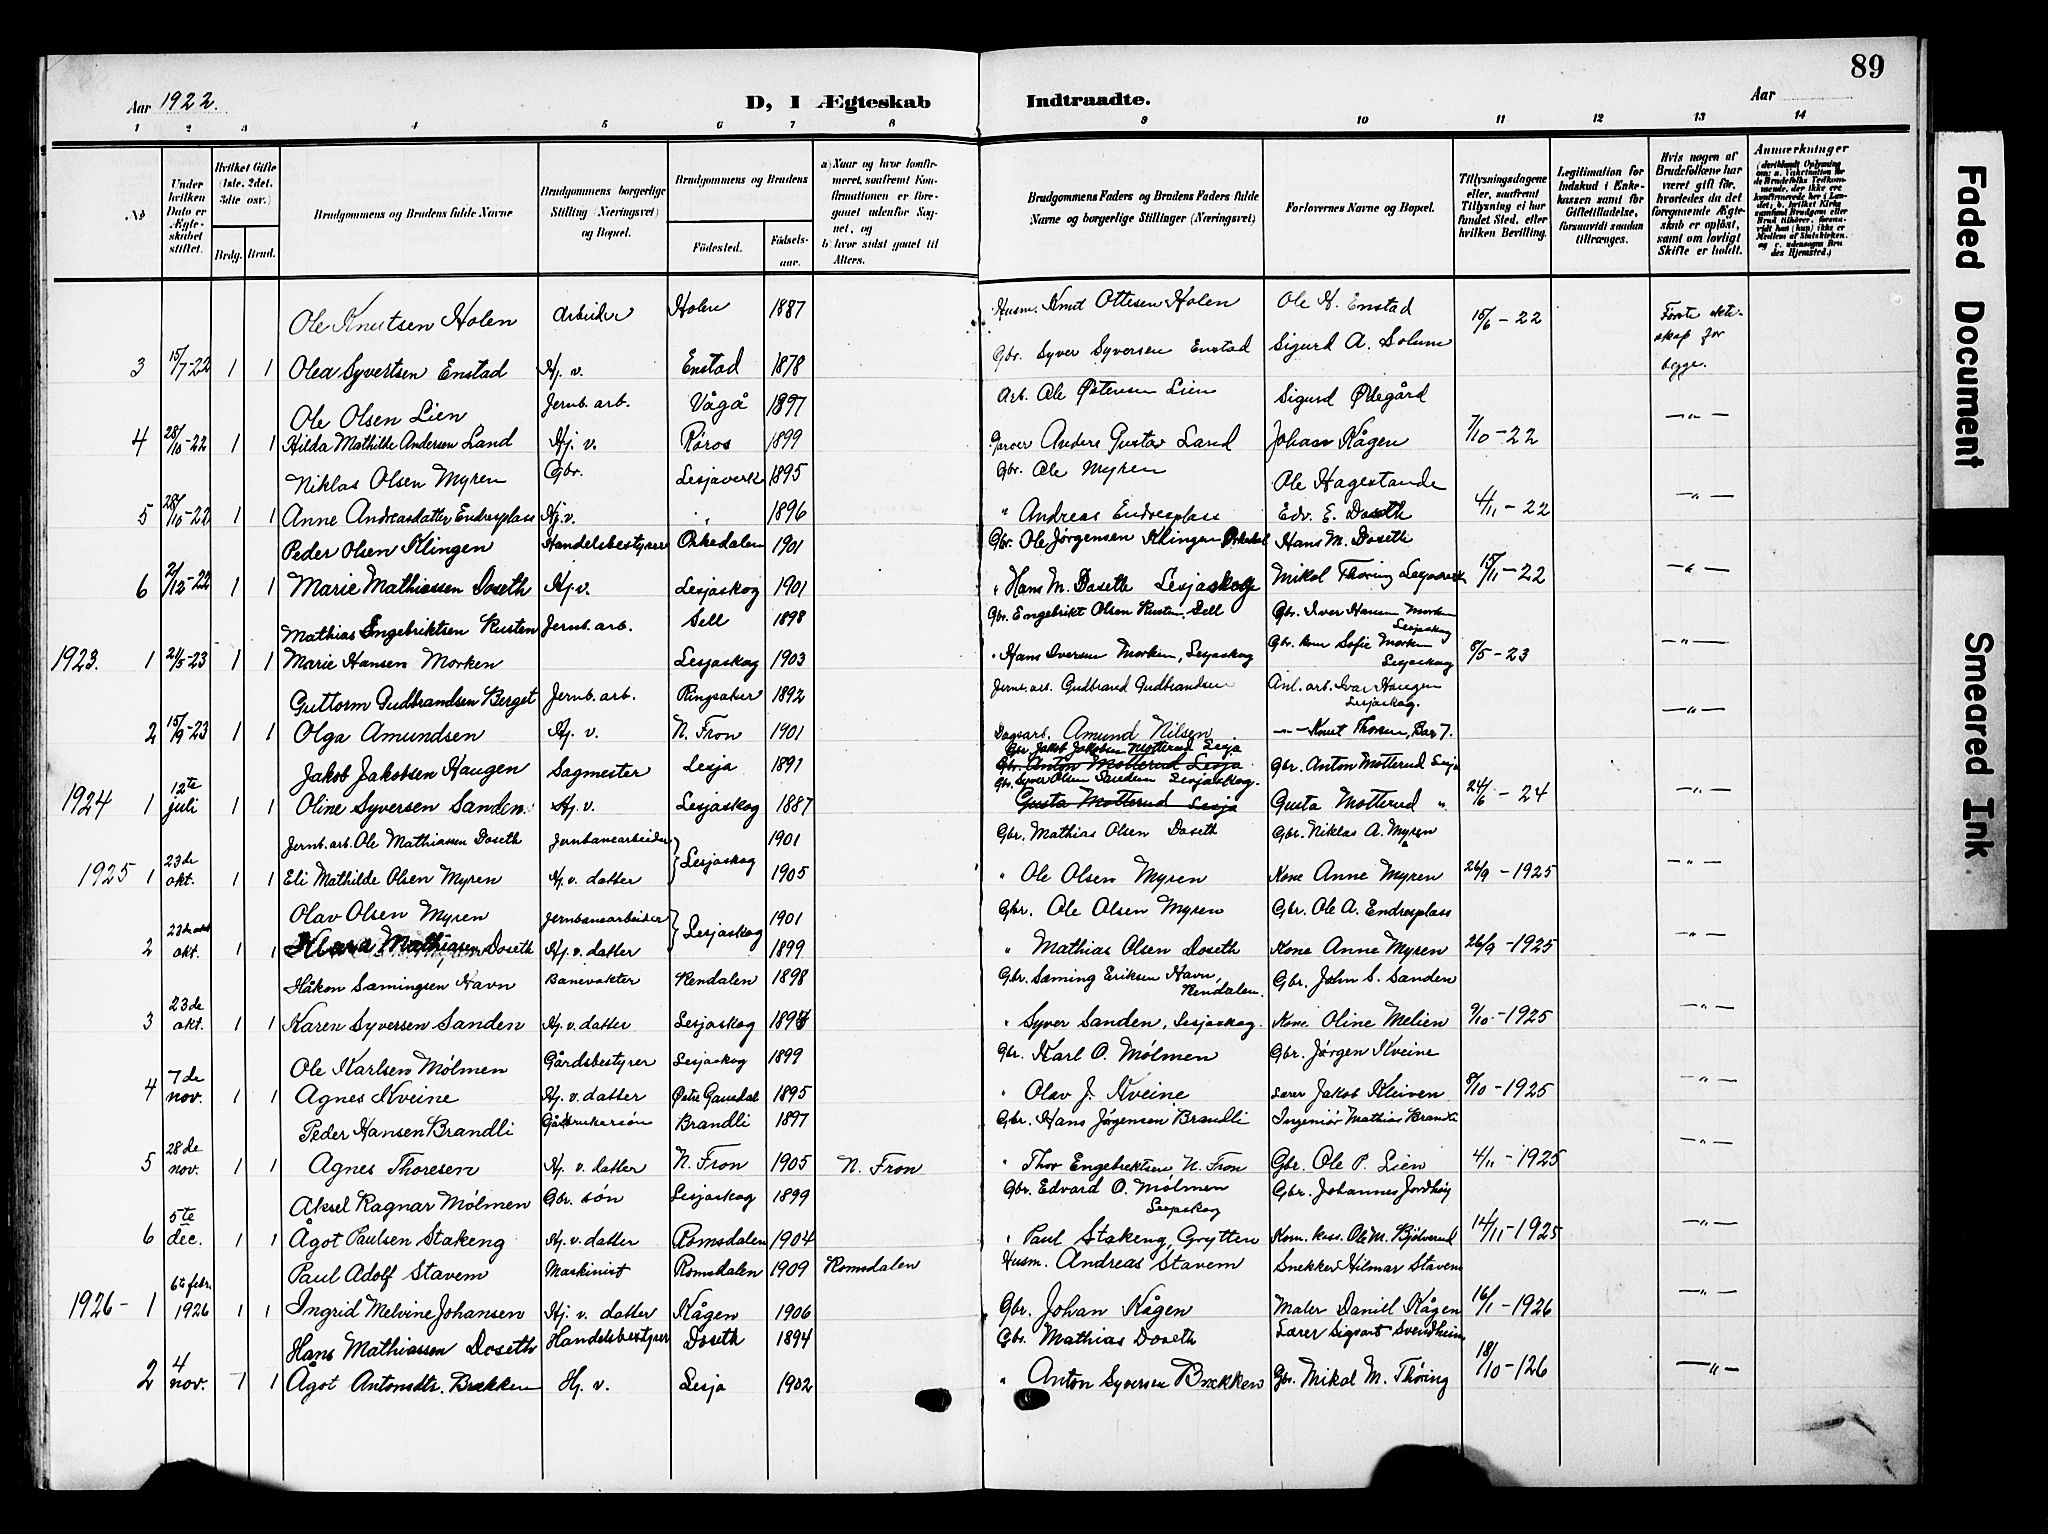 89
Aar 1922.
D, I Ægteskab Indtraadte.
Aar
1 2 3 4 5 6 7 8 9 10 11 12 13 14
No
Under hvilken Dato er Ægteskabet stiftet.
Hvilket Gifte (1ste, 2det, 3die osv.)
Brdg. Brud.
Brudgommens og Brudens fulde Navne
Brudgommens borgerlige Stilling (Næringsvei) og Bopæl.
Brudgommens og Brudens
Fødested. Fødselsaar.
a) Naar og hvor konfirmeret, saafremt Konfirmationen er foregaaet udenfor Sognet, og
b) hvor sidst gaaet til Alters.
Brudgommens Faders og Brudens Faders fulde Navne og borgerlige Stillinger (Næringsvei)
Forlovernes Navne og Bopæl.
Tillysningsdagene eller, saafremt Tillysning ei har fundet Sted, efter hvilken Bevilling.
Legitimation for Indskud i Enkekassen samt for Giftetilladelse, forsaavidt saadan tiltrænges.
Hvis nogen af Brudefolkene har været gift før, hvorledes da det foregaaende Ægteskab er opløst, samt om lovligt Skifte er holdt.
Anmærkninger
Ole Knutsen Holen Arbeider Holen 1887 Husm. Knut Ottesen Holen Ole H. Enstad 15/6-22 Første ekteskap for begge.
3 15/7-22 1 1 Olea Syvertsen Enstad Hj. v. Enstad 1878 Gbr. Syver Syversen Enstad Sigurd A. Solum
Ole Olsen Lien Jernb. arb. Vågå 1897 Arb. Ole Østensen Lien Sigurd Ødegård -"-
4 28/10-22 1 1 Hilda Mathilde Andersen Land Hj. v. Røros 1899 Garver Anders Gustav Land Johan Kågen 7/10-22
Niklas Olsen Myren Gbr. Lesjaverk 1895 Gbr. Ole Myren Ole Hagestande -"-
5 28/10-22 1 1 Anne Andreasdatter Endresplass Hj. v. " 1896 " Andreas Endresplass Edv. E. Doseth 4/11-22
Peder Olsen Klingen Handelsbestyrer Orkedalen 1901 Gbr. Ole Jørgensen Klingen Orkedal Hans M. Doseth
6 2/12-22 1 1 Marie Mathiassen Doseth Hj. v. Lesjaskog 1901 " Hans M. Doseth Lesjaskog Mikal Thøring Lesjaverk 15/11-22 -"-
Mathias Engebriktsen Rusten Jernb. arb. Sell 1898 Gbr. Engebrikt Olsen Rusten, Sell Gbr. Iver Hansen Morken Lesjaskog
1923. 1 21/5-23 1 1 Marie Hansen Morken Lesjaskog 1903 " Hans Iversen Morken, Lesjaskog Gbr. kone Sofie Morken Lesjaskog 5/5-23 -"-
Guttorm Gudbrandsen Berget Jernb. arb. Ringsaker 1892 Jernb. arb. Gudbrand Gudbrandsen Anl. arb. Ivar Haugen Lesjaskog. -"-
2 15/9-23 1 1 Olga Amundsen Hj. v. N. Fron 1901 Dagsarb. Amund Nilsen -"- Knut Thorsen, Bar 7.
Jakob Jakobsen Haugen Sagmester Lesja 1891 Gbr. Jakob Jakobsen Motterud Lesja Gbr. Anton Motterud Lesja Gbr. Anton Motterud Lesja
1924 1 12te juli 1 1 Oline Syversen Sanden. Hj. v. Lesjaskog 1887 Gbr. Syver Olsen Sanden Lesjaskog. Gusta Motterud Lesja Gusta Motterud " 24/6-24 -"-
Jernb. arb. Ole Mathiassen Doseth Jernbanearbeider 1901 Gbr. Mathias Olsen Doseth Gbr. Niklas A. Myren
1925 1 23de okt. 1 1 Eli Mathilde Olsen Myren Hj. v. datter Lesjaskog 1905 " Ole Olsen Myren Kone Anne Myren 26/9-1925 -"-
Olav Olsen Myren Jernbanearbeider 1901 Gbr. Ole Olsen Myren Gbr. Ole A. Endresplass
2 okt. 1 1 Klara Mathiasen Doseth Hj. v. datter Lesjaskog 1899 " Mathias Olsen Doseth Kone Anne Myren 26/9-1925 -"-
Håkon Samingsen Havn Banevokter Rendalen 1898 Gbr. Sæming Eriksen Havn, Rendalen. Gbr. John S. Sanden
3 23de okt. 1 1 Karen Syversen Sanden Hj. v. datter Lesjaskog 1894 " Syver Sanden, Lesjaskog. Kone Oline Melien 9/10-1925 -"-
Ole Karlsen Mølmen Gårdsbestyrer Lesjaskog 1899 Gbr. Karl O. Mølmen Gbr. Jørgen Kveine
4 7de nov. 1 1 Agnes Kveine Hj. v. datter Østre Gausdal 1895 " Olav J. Kveine Lærer Jakob Kleiven 8/10-1925 -"-
Peder Hansen Brandli Gårdbrukersøn Brandli 1897 Gbr. Hans Jørgensen Brandli Ingeniør Mathias Brandli
5 28de nov. 1 1 Agnes Thoresen Hj. v. datter N. Fron 1905 N. Fron " Thor Engebrektsen N. Fron Gbr. Ole P. Lien 4/11-1925 -"-
Aksel Ragnar Mølmen Gbr. søn Lesjaskog 1899 Gbr. Edvard O. Mølmen Lesjaskog Gbr. Johannes Jordhøy
6 5te dec. 1 1 Ågot Paulsen Stakeng Hj. v. datter Romsdalen 1904 " Paul Stakeng, Grytten Kom. kass. Ole M. Bjølverud 14/11-1925 -"-
Paul Adolf Stavem Maskinist Romsdalen 1909 Romsdalen Husm. Andreas Stavem Snekker Hilmar Stavem
1926- 1 6te febr. 1926 1 1 Ingrid Melvine Johansen Hj. v. datter Kågen 1906 Gbr. Johan Kågen Maler Daniel Kågen 16/1-1926 -"-
Hans Mathiassen Doseth Handelsbestyrer Doseth 1894 Gbr. Mathias Doseth Lærer Sigvart Svendheim
2 4 nov. 1 1 Ågot Antonsdtr. Brækken Hj. v. Lesja 1902 " Anton Syversen Brækken Gbr. Mikal M. Thøring 18/10-126 -"-
Faded Document
Smeared Ink